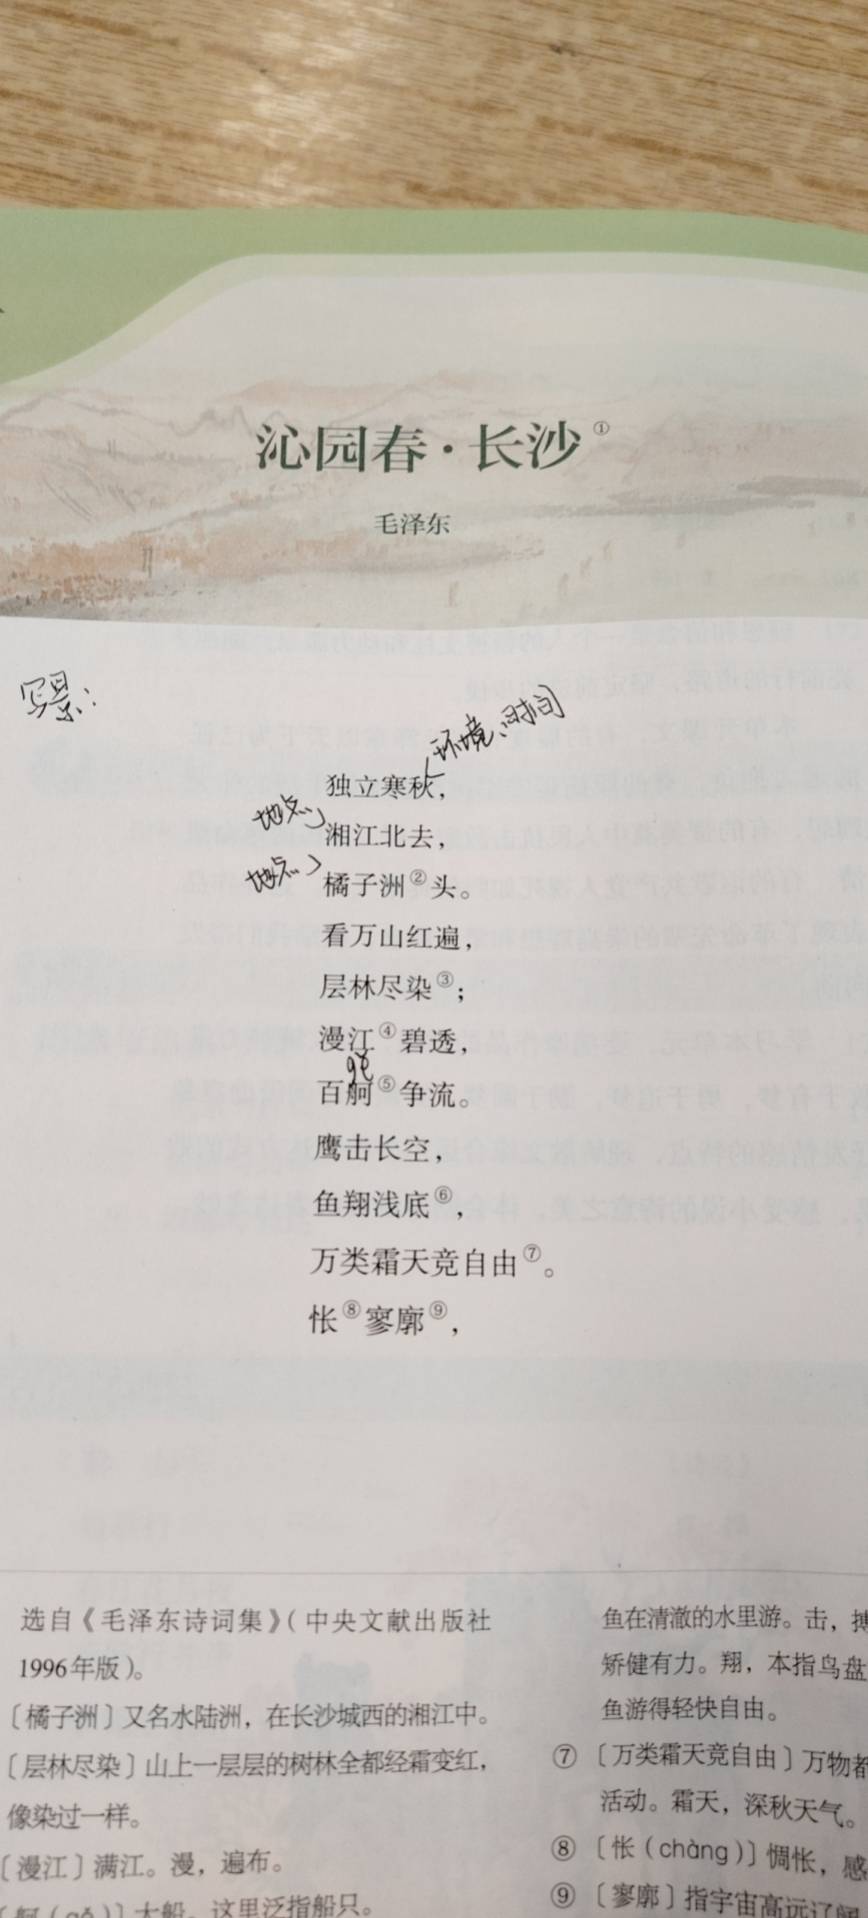 沁园春·长沙①
毛泽东
写景：
环境、时间
独立寒秋，
地点
湘江北去，
地点
橘子洲②头。
看万山红遍，
层林尽染③；
漫江④碧透，
gě
百舸⑤争流。
鹰击长空，
鱼翔浅底⑥，
万类霜天竞自由⑦。
怅⑧寥廓⑨，
选自《毛泽东诗词集》（中央文献出版社
1996年版）。
〔橘子洲〕又名水陆洲，在长沙城西的湘江中。
〔层林尽染〕山上一层层的树林全都经霜变红，
像染过一样。
〔漫江〕满江。漫，遍布。
〔舸（gě）〕大船。这里泛指船只。
鱼在清澈的水里游。击，搏
矫健有力。翔，本指鸟盘
鱼游得轻快自由。
⑦〔万类霜天竞自由〕万物都
活动。霜天，深秋天气。
⑧〔怅（chàng）〕惆怅，感
⑨〔寥廓〕指宇宙高远辽阔